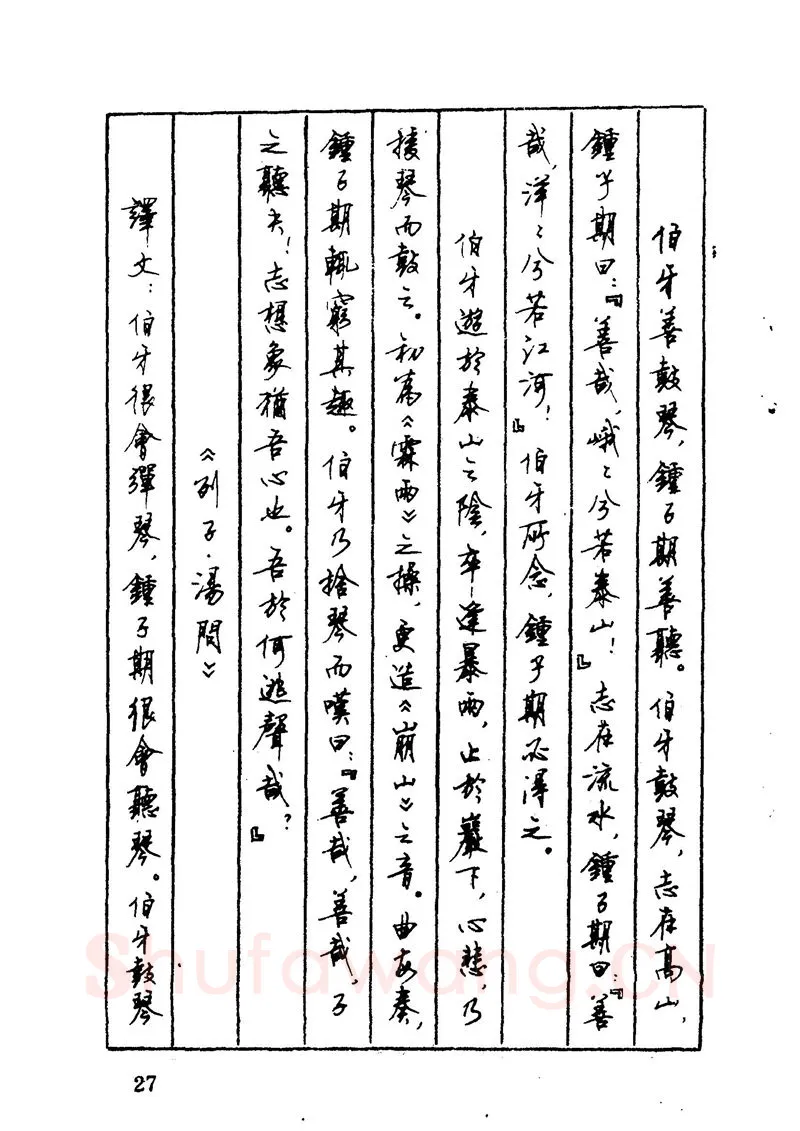 伯牙善鼓琴，鍾子期善聽。伯牙鼓琴，志在高山，
鍾子期曰：『善哉，峨〻兮若泰山！』志在流水，鍾子期曰：『善
哉，洋〻兮若江河！』伯牙所念，鍾子期必得之。
伯牙遊於泰山之陰，卒逢暴雨，止於巖下，心悲乃
援琴而鼓之。初為《霖雨》之操，更造《崩山》之音。曲每奏，
鍾子期輒窮其趣。伯牙乃捨琴而嘆曰：『善哉，善哉，子
之聽夫！志想象猶吾心也。吾於何逃聲哉？』
《列子·湯問》
譯文：伯牙很會彈琴，鍾子期很會聽琴。伯牙鼓琴
27
Shufawang.CN